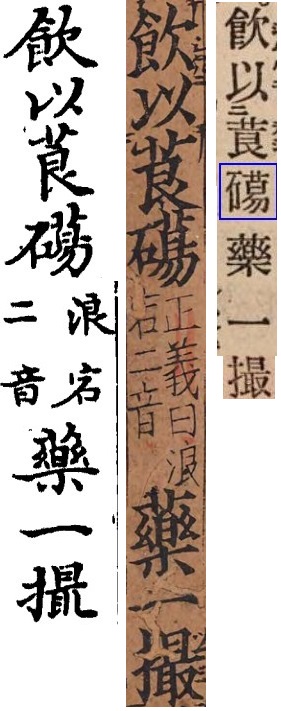 飲以莨藥一撮
飲以莨
正義曰浪
宕二音
藥一撮
飲以莨
浪宕
二音
藥一撮